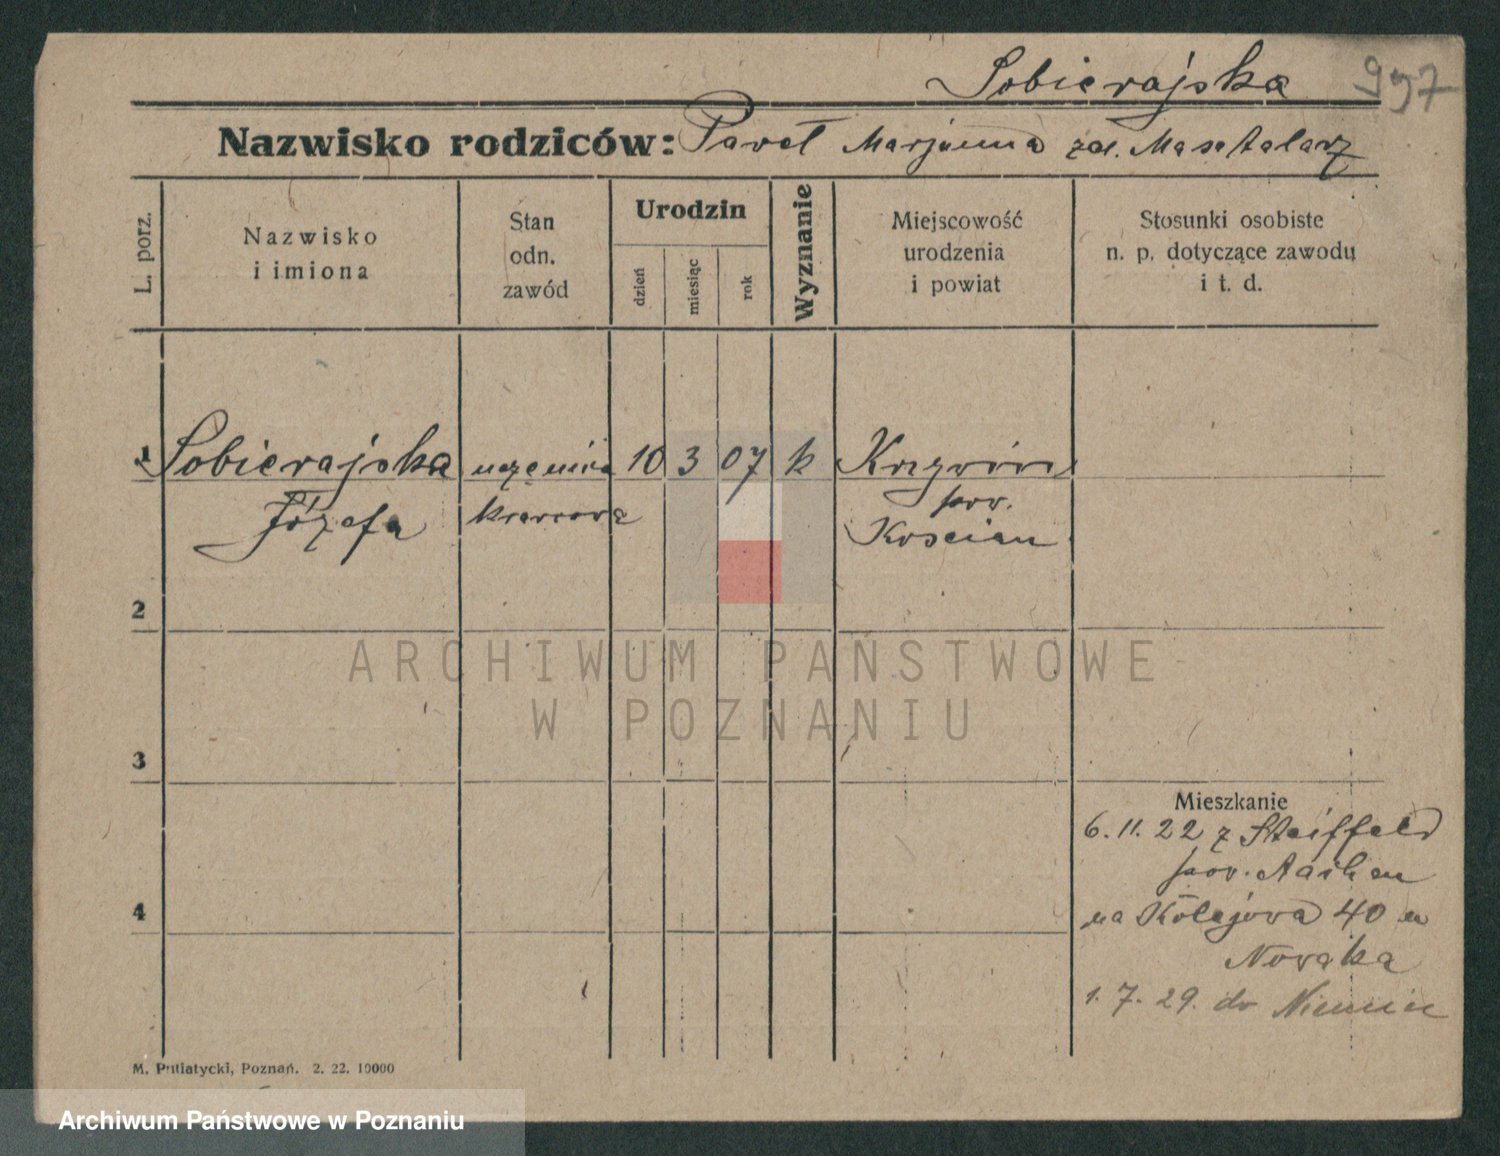 Sobierajska 997
Nazwisko rodziców: Paweł Marjanna zd. Masztalarz
L. porz.
Nazwisko
i imiona
Stan
odn.
zawód
Urodzin
dzień
miesiąc
rok
Wyznanie
Miejscowość
urodzenia
i powiat
Stosunki osobiste
n. p. dotyczące zawodu
i t. d.
1 Sobierajska uczenica 10 3 07 k Krzywiń
Józefa krawcowa pow.
Koscian
2
ARCHIWUM PAŃSTWOWE
W POZNANIU
3
Mieszkanie
6. 11. 22 z
pow. Aachen
4
na Kolejowa 40 u
Nowaka
1. 7. 29. do Niemiec
M. Putiatycki, Poznań. 2. 22. 10000
Archiwum Państwowe w Poznaniu